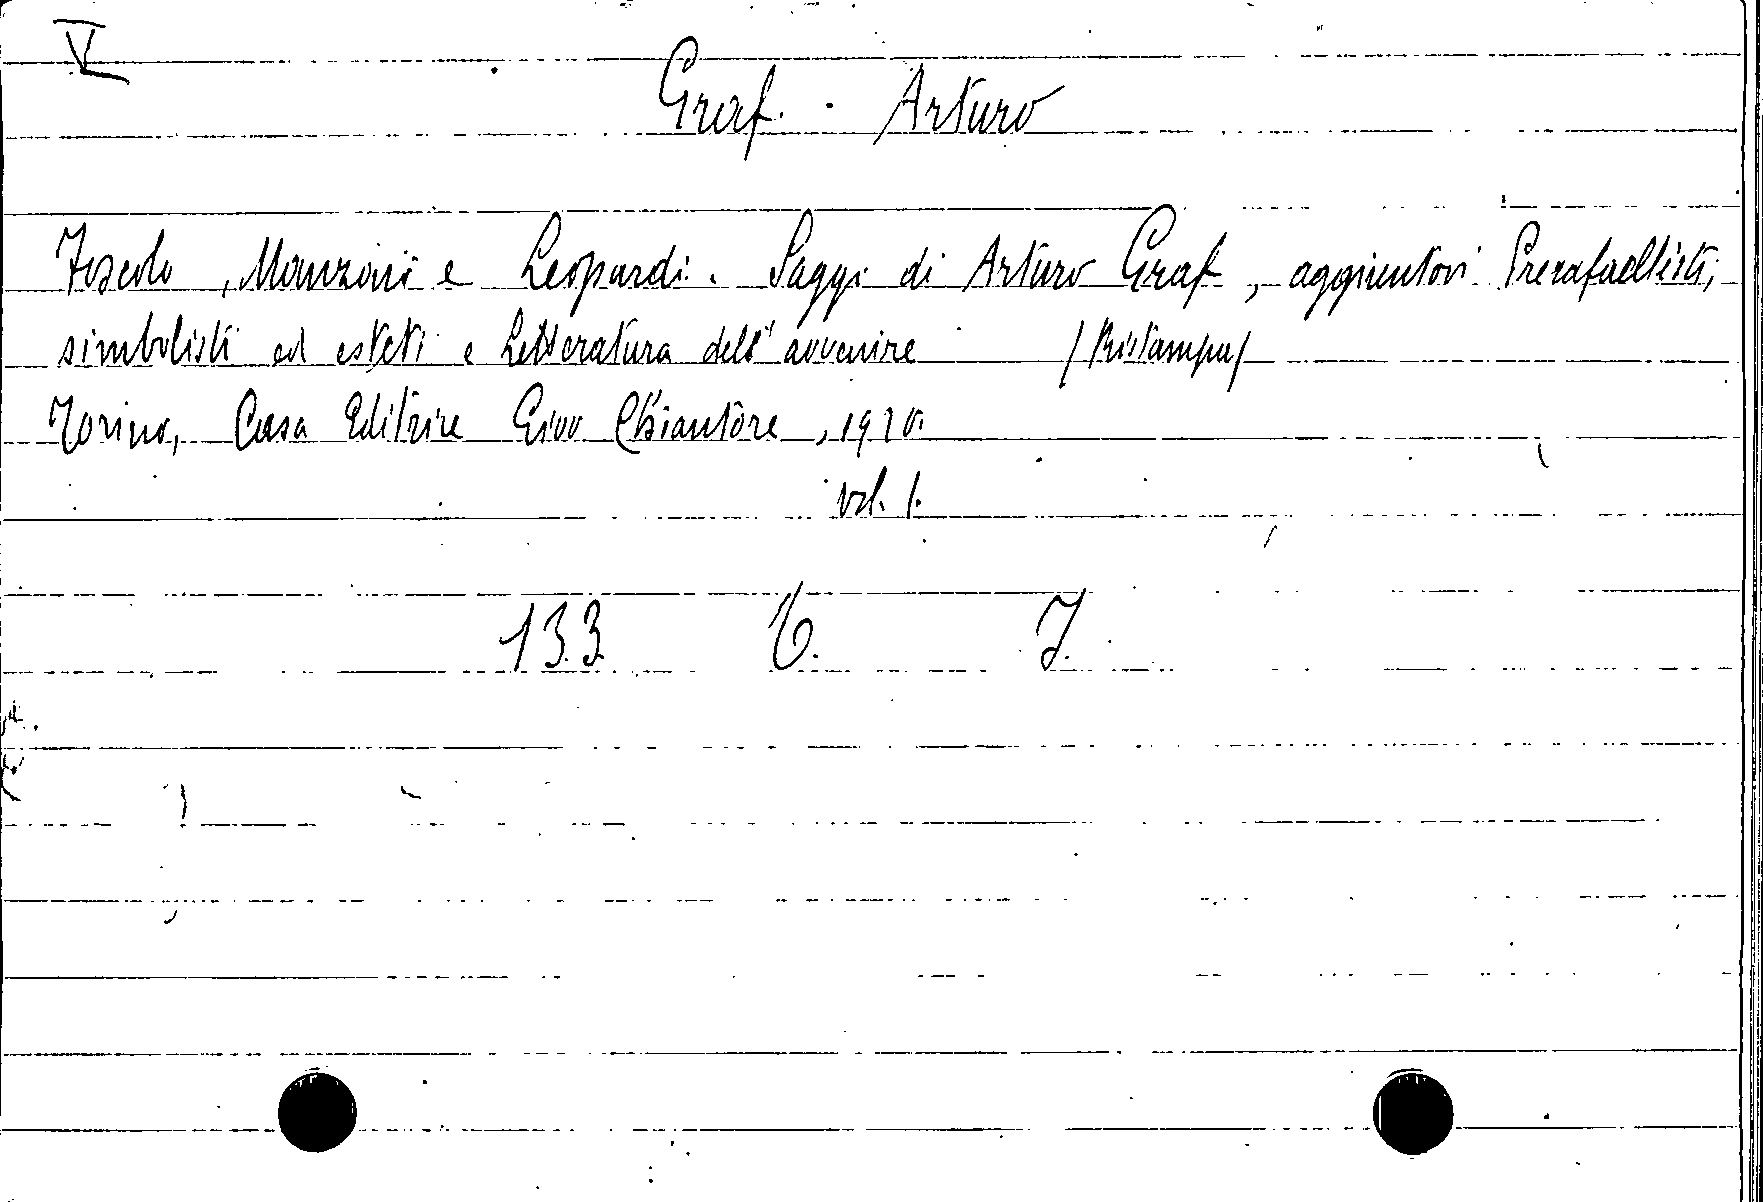 V
Graf. - Arturo
Foscolo, Manzoni e Leopardi. Saggi di Arturo Graf, aggiuntovi Prerafaelliti,
simbolisti ed esteti e Letteratura dell'avvenire /Ristampa/
Torino, Casa Editrice Giov Chiantore, 1920.
vol. 1.
133. C. I.